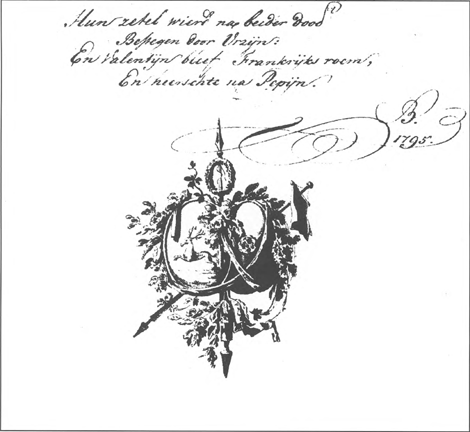 Hun zetel wierd na beider dood
Bestegen door Urzijn:
En Valentijn bleef Frankrijks roem,
En heerschte na Pepijn.
B.
1795.